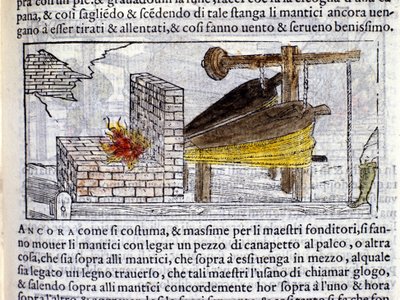 pra cosi un pie, & grauadoui la fune, facci coe fa la cicogna d'una ca
pana, & cosi sagliēdo & scēdendo di tale stanga li mantici ancora uen-
gano à esser tirati & allentati, & cosi fanno uento & serueno benissimo.
ANCORA come si costuma, & massime per li maestri fonditori, si fan-
no mouer li mantici con legar un pezzo di canapetto al palco, o altra
cosa, che sia sopra alli mantici, che sopra à essi uenga in mezzo, al quale
sia legato un legno trauerso, che tali maestri l'usano di chiamar glogo,
& salendo alli mantici concordemente hor sopra à l'uno & hora